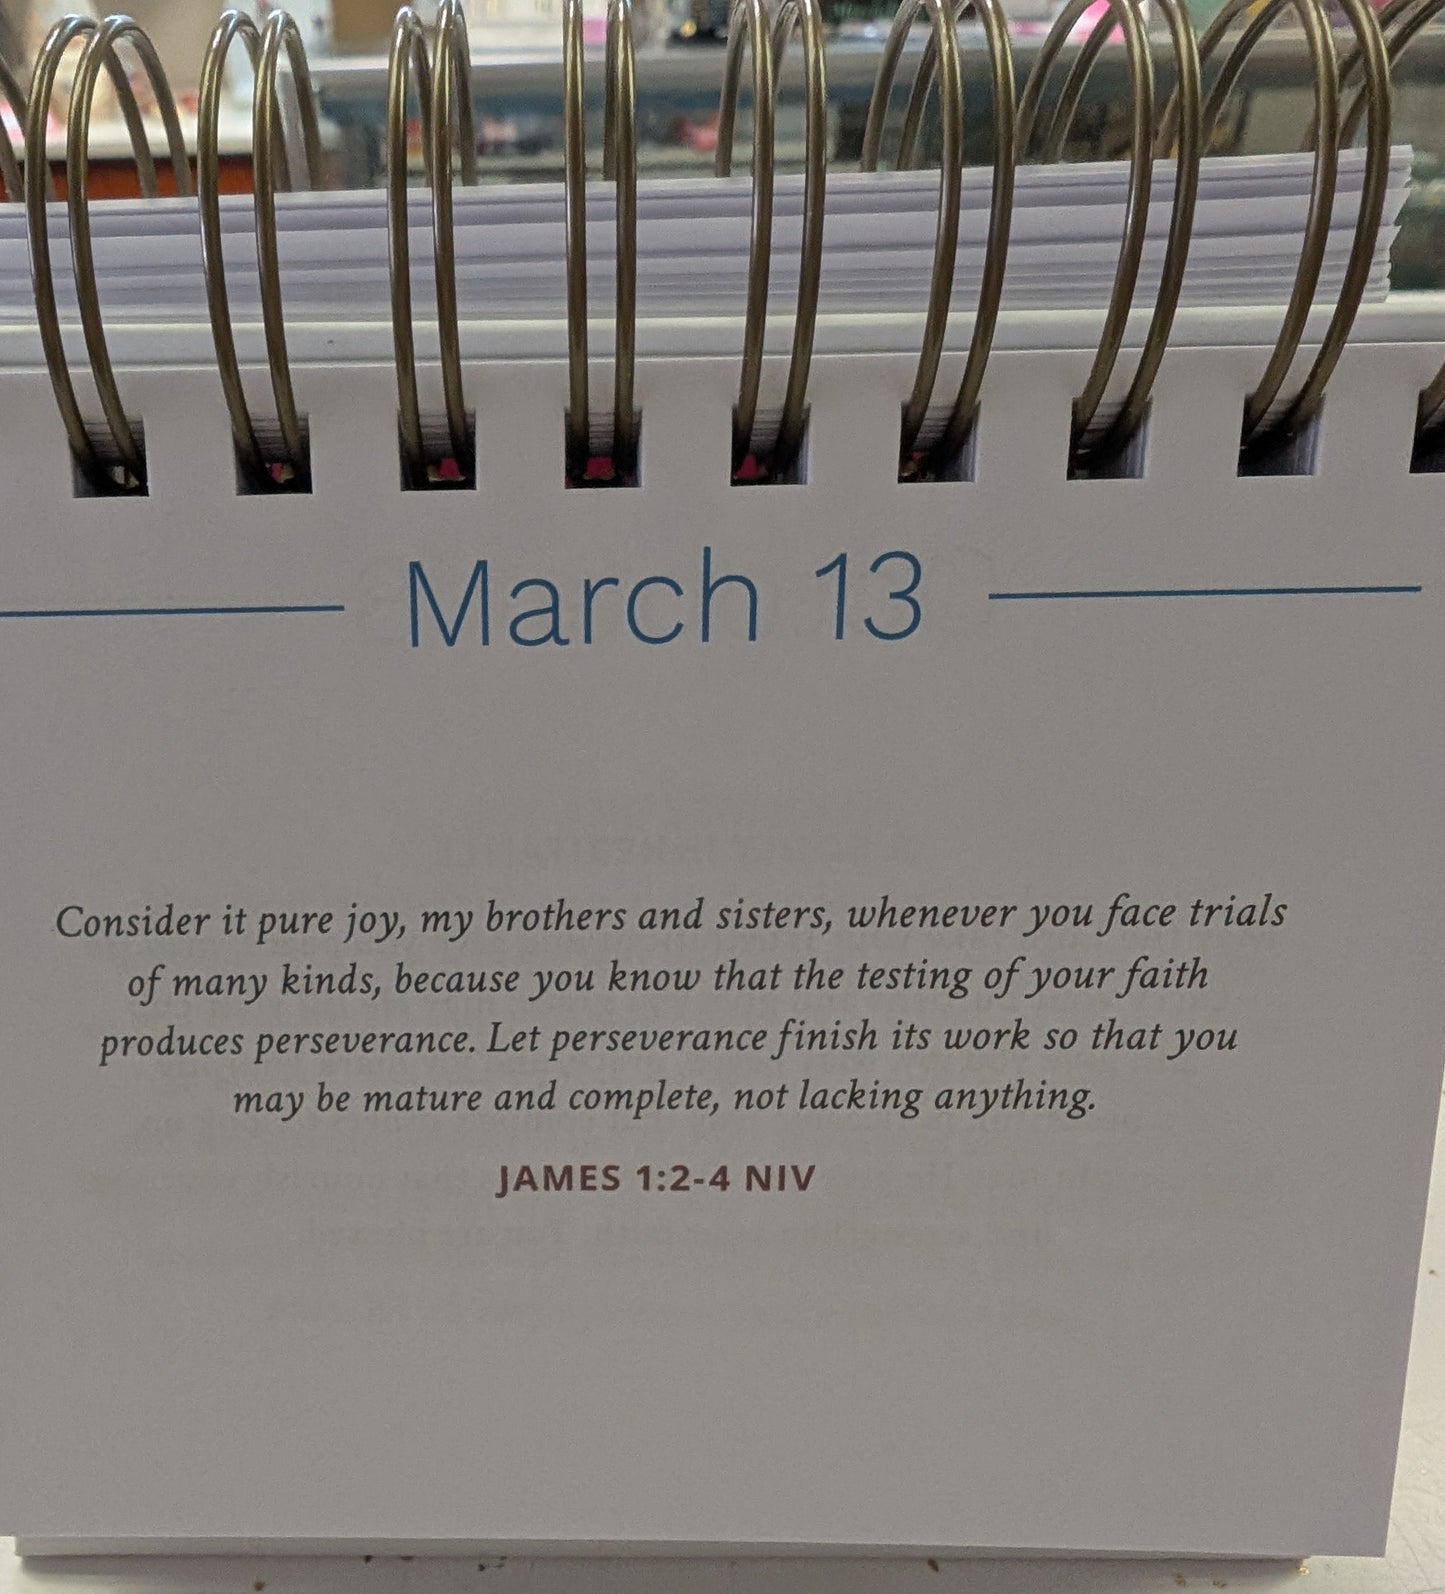 March 13
Consider it pure joy, my brothers and sisters, whenever you face trials
of many kinds, because you know that the testing of your faith
produces perseverance. Let perseverance finish its work so that you
may be mature and complete, not lacking anything.
JAMES 1:2-4 NIV